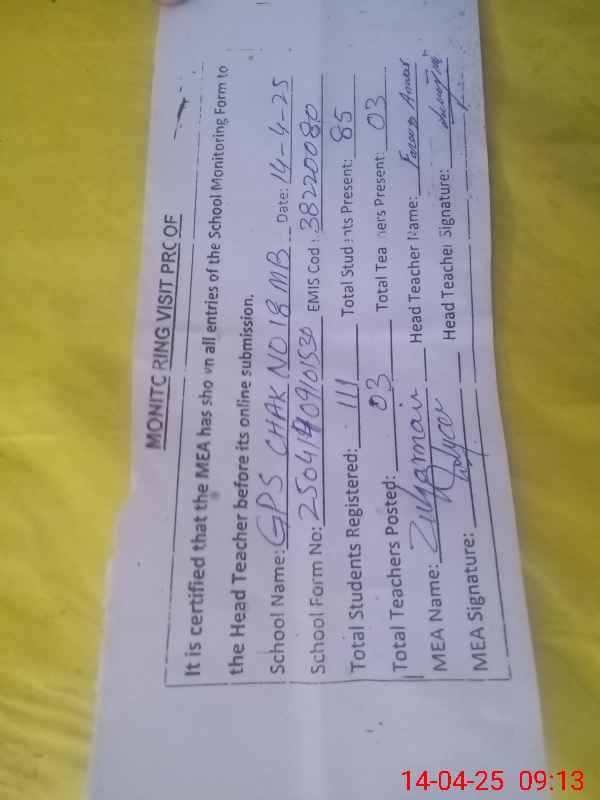 MONITORING VISIT PROOF
It is certified that the MEA has shown all entries of the School Monitoring Form to
the Head Teacher before its online submission.
School Name: GPS CHAK NO 18 MB Date: 14-4-25
School Form No: 25041409101530 EMIS Cod: 38220080
Total Students Registered: 111 Total Students Present: 85
Total Teachers Posted: 03 Total Teachers Present: 03
MEA Name: Head Teacher Name:
MEA Signature: Head Teacher Signature:
14-04-25 09:13